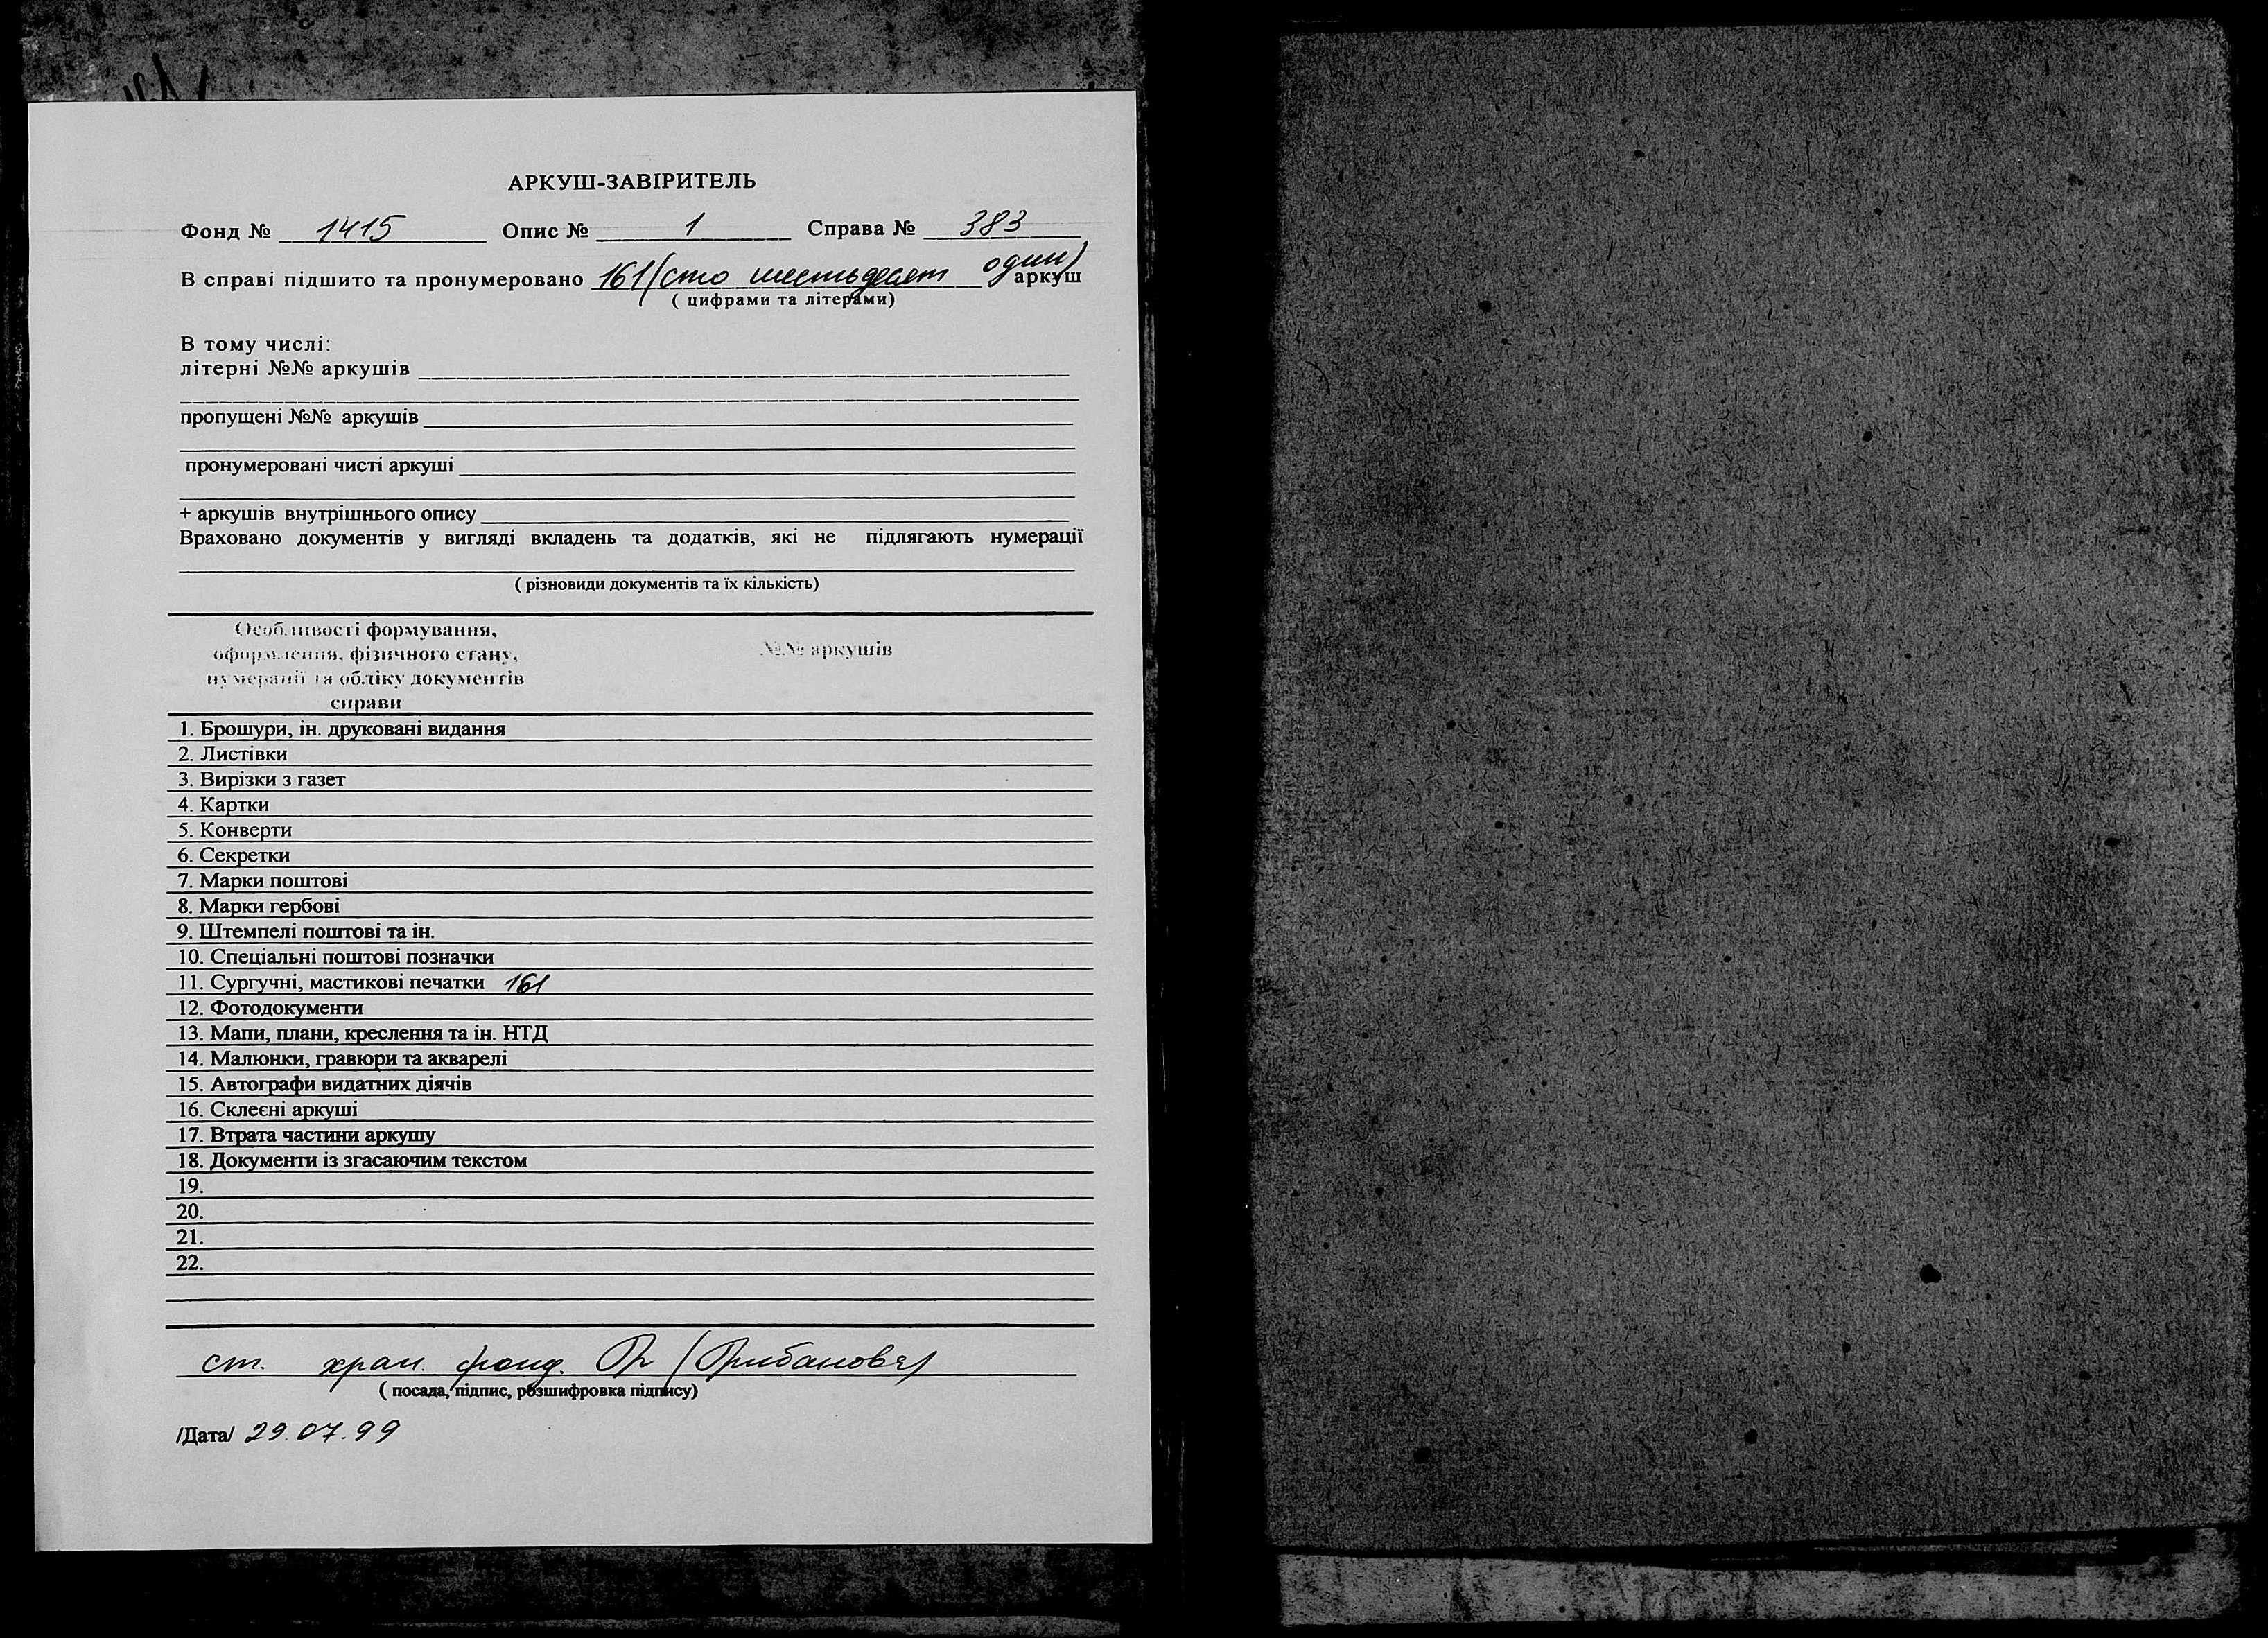 АРКУШ-ЗАВІРИТЕЛЬ
Фонд № 1415 Опис № 1 Справа № 383
В справі підшито та пронумеровано 161 (сто шестьдесят один) аркуш
( цифрами та літерами)
В тому числі:
літерні №№ аркушів
пропущені №№ аркушів
пронумеровані чисті аркуші
+ аркушів внутрішнього опису
Враховано документів у вигляді вкладень та додатків, які не підлягають нумерації
( різновиди документів та їх кількість)
Особливості формування, №№ аркушів
оформлення, фізичного стану,
нумерації та обліку документів
справи
1. Брошури, ін. друковані видання
2. Листівки
3. Вирізки з газет
4. Картки
5. Конверти
6. Секретки
7. Марки поштові
8. Марки гербові
9. Штемпелі поштові та ін.
10. Спеціальні поштові позначки
11. Сургучні, мастикові печатки 161
12. Фотодокументи
13. Мапи, плани, креслення та ін. НТД
14. Малюнки, гравюри та акварелі
15. Автографи видатних діячів
16. Склеєні аркуші
17. Втрата частини аркушу
18. Документи із згасаючим текстом
19.
20.
21.
22.
ст. хран. фонд.
( посада, підпис, розшифровка підпису)
/Дата/ 29.07.99